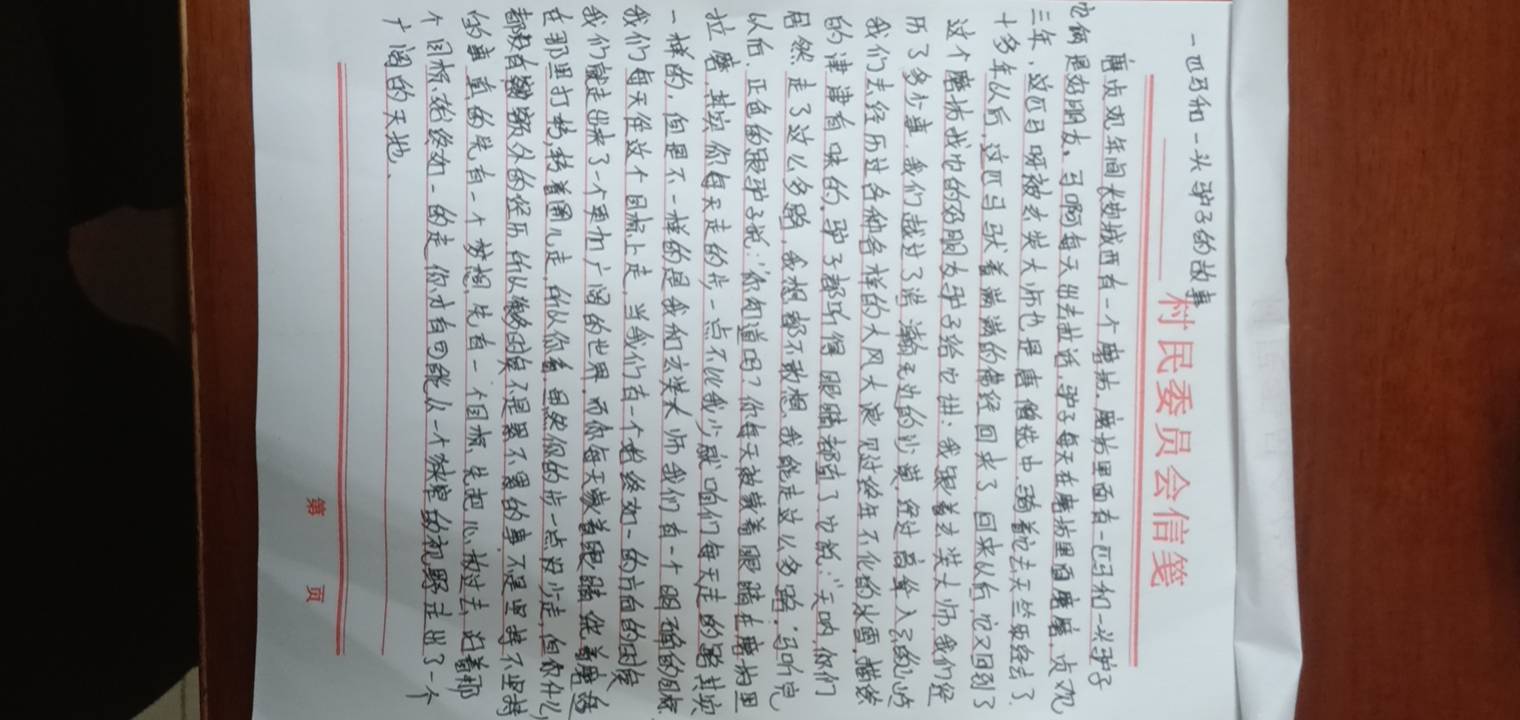 村民委员会信笺
一匹马和一头驴子的故事
唐贞观年间长安城西有一个磨坊.磨坊里面有一匹马和一头驴子
它俩是好朋友.马啊每天出去拉活.驴子每天在磨坊里面磨磨.贞观
三年.这匹马呀被玄奘大师也是唐僧选中.骑着它去天竺取经去了.
十多年以后,这匹马驮着满满的佛经回来了.回来以后它又回到了
这个磨坊找他的好朋友驴子给它讲:我跟着玄奘大师.我们经
历了多少事.我们越过了浩瀚无边的沙漠.经过高耸入云的山岭
我们去经历过各种各样的大风大浪.见过终年不化的冰雪.描绘
的津津有味的.驴子都听得眼睛都直了.也说:“天呐,你们
居然走了这么多路,我想都不敢想.我能走这么多路.”马听完
以后.正色的跟驴子说:“你知道吗?你每天被蒙着眼睛在磨坊里
拉磨.其实你每天走的步一点不比我少.咱们每天走的路其实
一样的,但是不一样的是我和玄奘大师我们有一个明确的目标.
我们每天往这个目标上走.当我们在一个始终如一的方向的时候
我们就走出来了一个更加广阔的世界.而你每天蒙着眼睛依着磨
在那里打转,转着圈儿走.所以你看.虽然你的步一点没少走,但你什么
都没有额外的经历.所以很多时候不是累不累的事.不是坚持不坚持
的事.真的先有一个梦想,先有一个目标.先把心放过去.沿着那
个目标.始终如一的走.你才有可能从一个狭窄的视野走出了一个
广阔的天地.
第 页